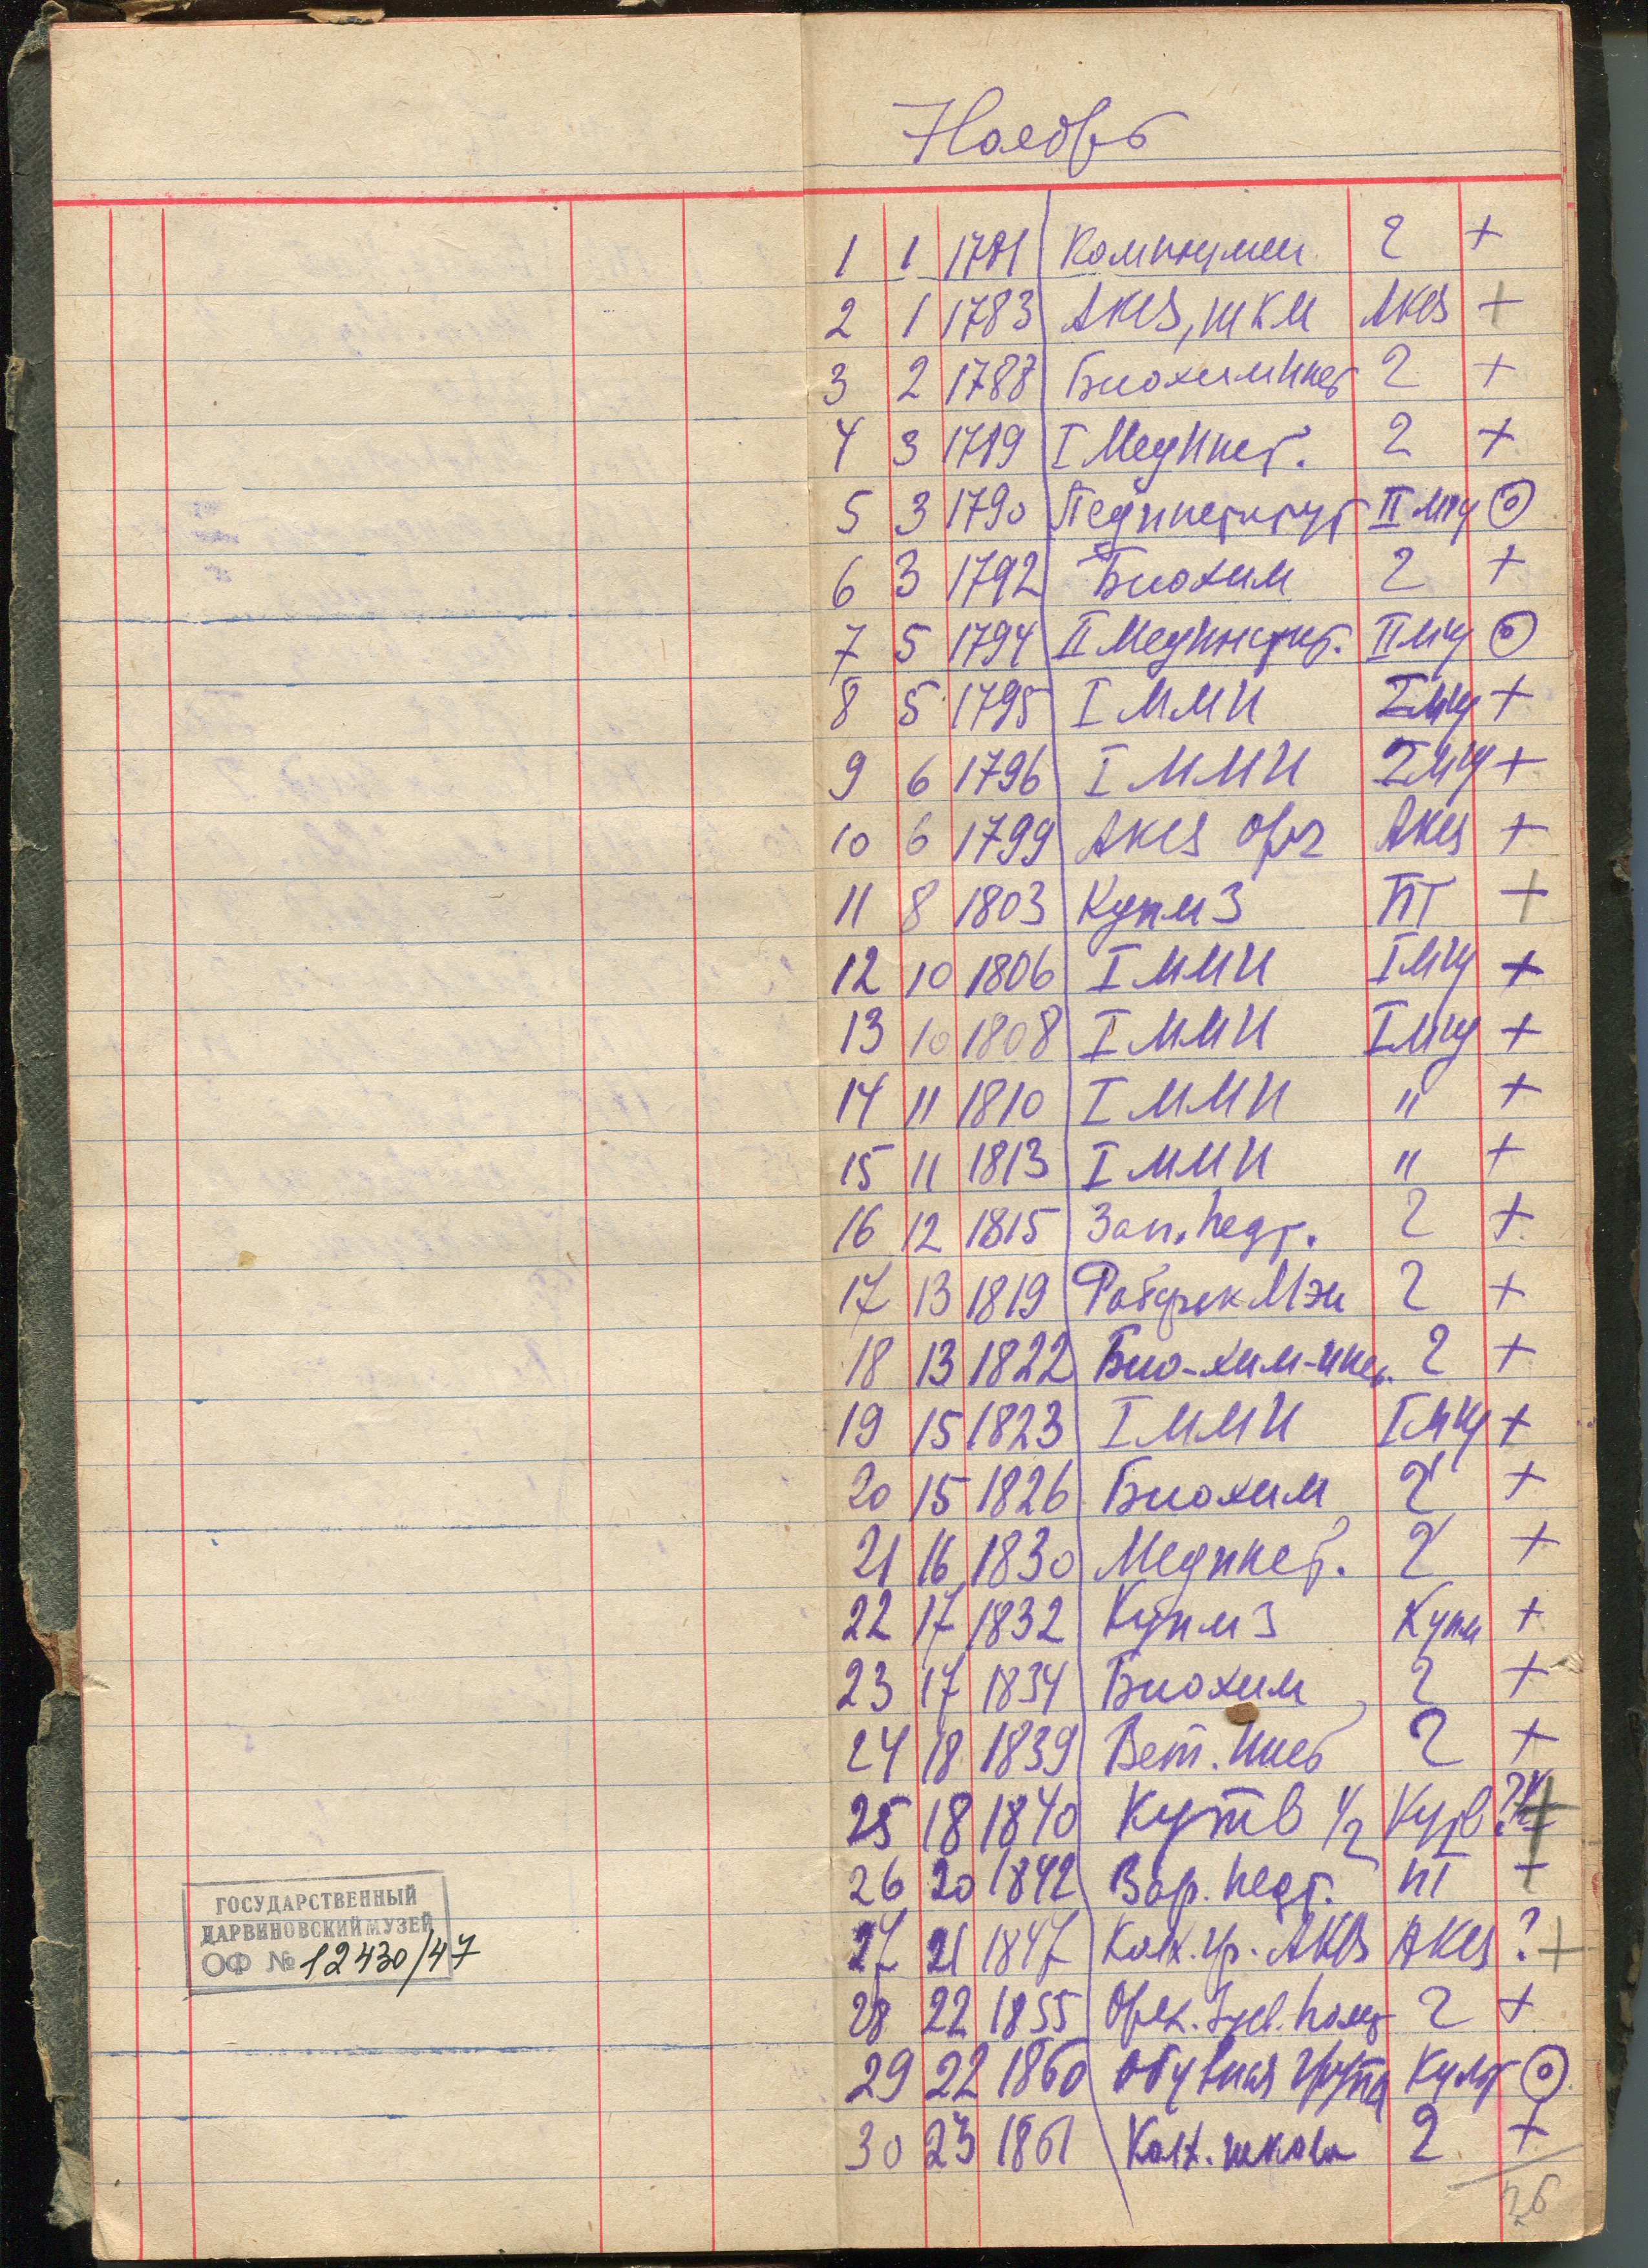 Ноябрь
1 1 1781 Компнумен 2 +
2 1 1783 АКИЗ, ШКМ АКИЗ +
3 2 1788 БиохимИнст 2 +
4 3 1789 I МедИнст. 2 +
5 3 1790 Пединститут II МГУ ⊙
6 3 1792 Биохим 2 +
7 5 1794 II Мединстит. II МГУ ⊙
8 5 1795 I ММИ I МГУ +
9 6 1796 I ММИ I МГУ +
10 6 1799 +
11 8 1803 КупмЗ ПТ +
12 10 1806 I ММИ I МГУ +
13 10 1808 I ММИ I МГУ +
14 11 1810 I ММИ " +
15 11 1813 I ММИ " +
16 12 1815 Зап. педт. 2 +
17 13 1819 Рабфак МЭИ 2 +
18 13 1822 Био-хим-инст. 2 +
19 15 1823 I ММИ I МГУ +
20 15 1826 Биохим 2 +
21 16 1830 Мединст. 2 +
22 17 1832 КупмЗ Купм +
23 17 1834 Биохим 2 +
24 18 1839 Вет. Инст 2 +
25 18 1840 Кутв 1/2 Кутв ? +
26 20 1842 Зар. педт. ПТ +
27 21 1847 Колх. гр. ? +
28 22 1855 2 +
29 22 1860 Обувная группа Культ ⊙
30 23 1861 Колх. школа 2 +
26
ГОСУДАРСТВЕННЫЙ
ДАРВИНОВСКИЙ МУЗЕЙ
ОФ № 12430/47